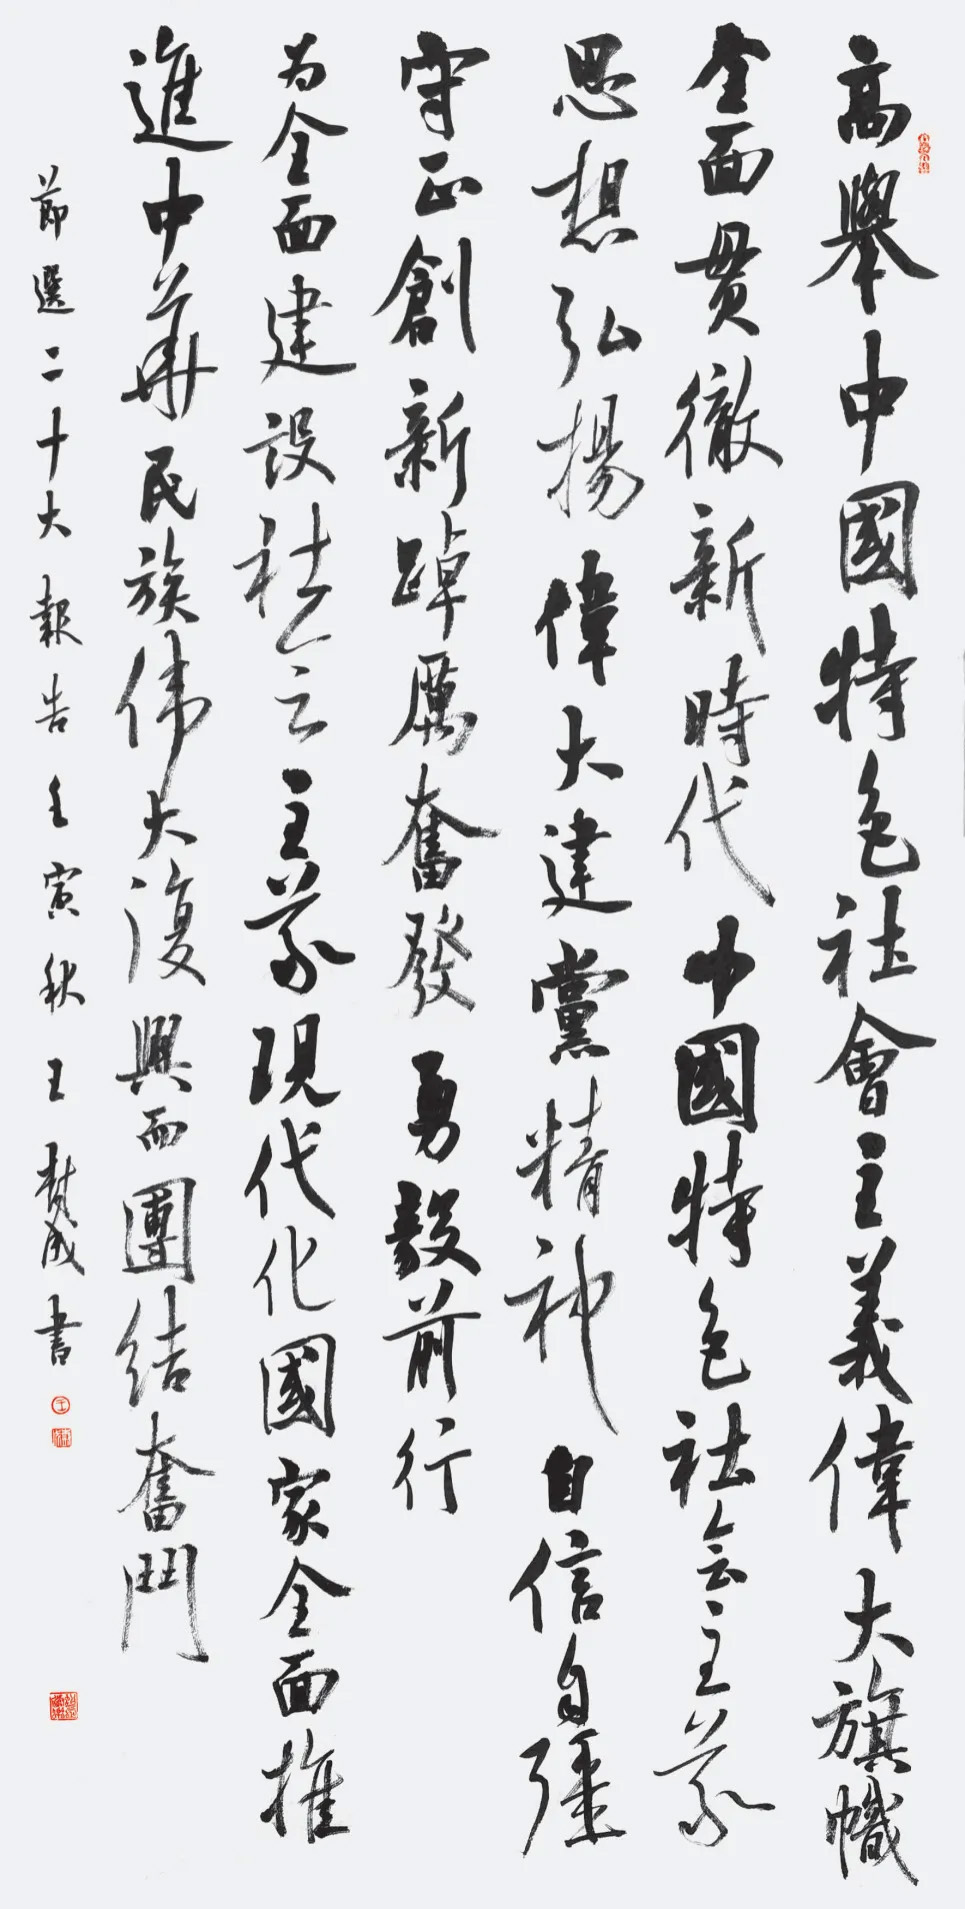 高舉中國特色社會主義偉大旗幟
全面贯徹新時代中國特色社会主义
思想弘揚偉大建黨精神自信自強
守正創新踔厲奮發勇毅前行
为全面建设社会主义現代化國家全面推
進中華民族伟大復興而團结奮鬥
節選二十大報告壬寅秋王贊成書